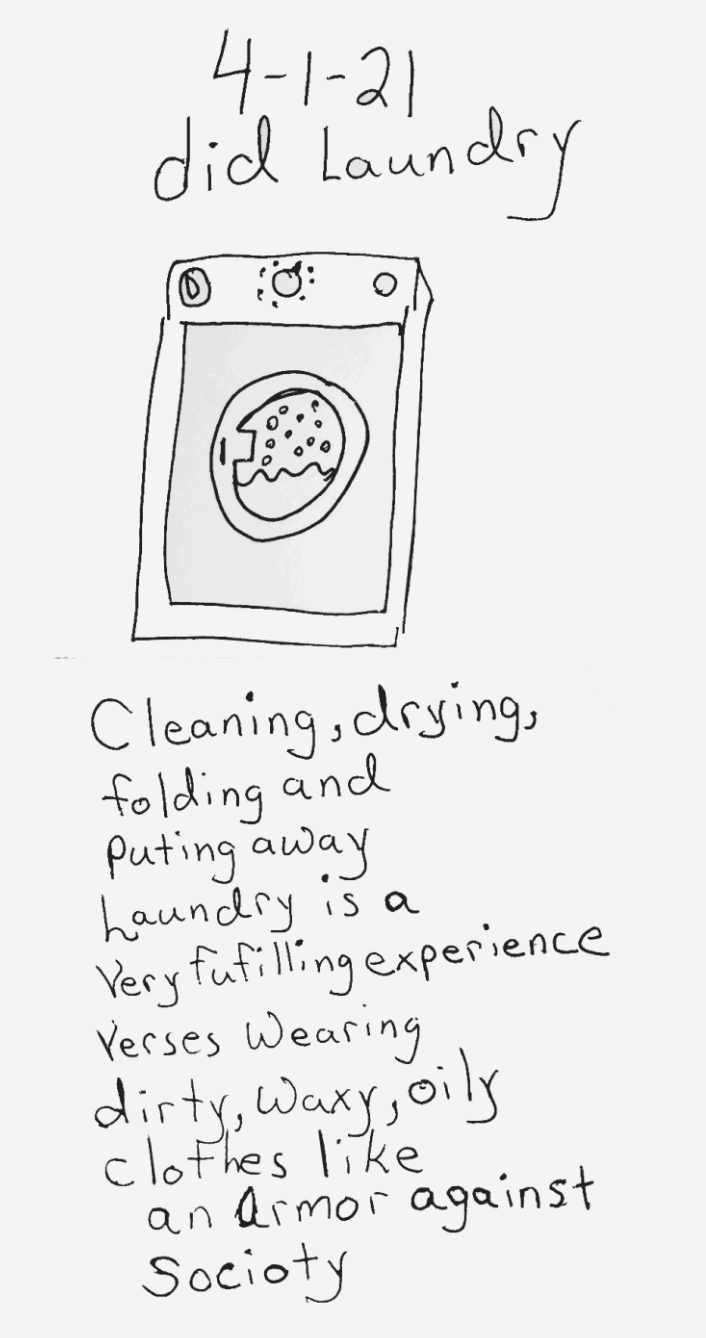 4-1-21
did Laundry
Cleaning, drying,
folding and
Puting away
Laundry is a
Very fufilling experience
Verses Wearing
dirty, Waxy, oily
clothes like
an Armor against
Socioty